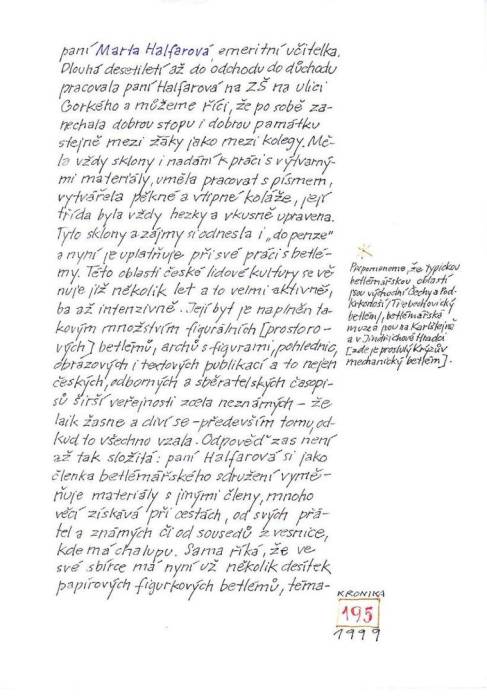 paní Marta Halfarová, emeritní učitelka.
Dlouhá desetiletí až do odchodu do důchodu
pracovala paní Halfarová na ZŠ na ulici
Gorkého a můžeme říci, že po sobě za-
nechala dobrou stopu i dobrou památku
stejně mezi žáky jako mezi kolegy. Mě-
la vždy sklony i nadání k práci s výtvarný-
mi materiály, uměla pracovat s písmem,
vytvářela pěkné a vtipné koláže, její
třída byla vždy hezky a vkusně upravena.
Tyto sklony a zájmy si odnesla i „do penze"
a nyní je uplatňuje při své práci s betlé-
my. Této oblasti české lidové kultury se vě-
nuje již několik let a to velmi aktivně,
ba až intenzivně. Její byt je naplněn ta-
kovým množstvím figurálních [prostoro-
vých] betlémů, archů s figurami, pohlednic,
obrazových i textových publikací a to nejen
českých, odborných a sběratelských časopi-
sů širší veřejnosti zcela neznámých – že
laik žasne a diví se – především tomu, od-
kud to všechno vzala. Odpověď zas není
až tak složitá: paní Halfarová si jako
členka betlémářského sdružení vymě-
ňuje materiály s jinými členy, mnoho
věcí získává při cestách, od svých přá-
tel a známých či od sousedů z vesnice,
kde má chalupu. Sama říká, že ve
své sbírce má nyní už několik desítek
papírových figurkových betlémů, téma-
Připomeneme, že typickou
betlémářskou oblastí
jsou východní Čechy a Pod-
krkonoší / Třebechovický
betlém /, betlémářská
muzea jsou na Karlštejně
a v Jindřichově Hradci
[zde je proslulý Krýzův
mechanický betlém].
KRONIKA
195
1999